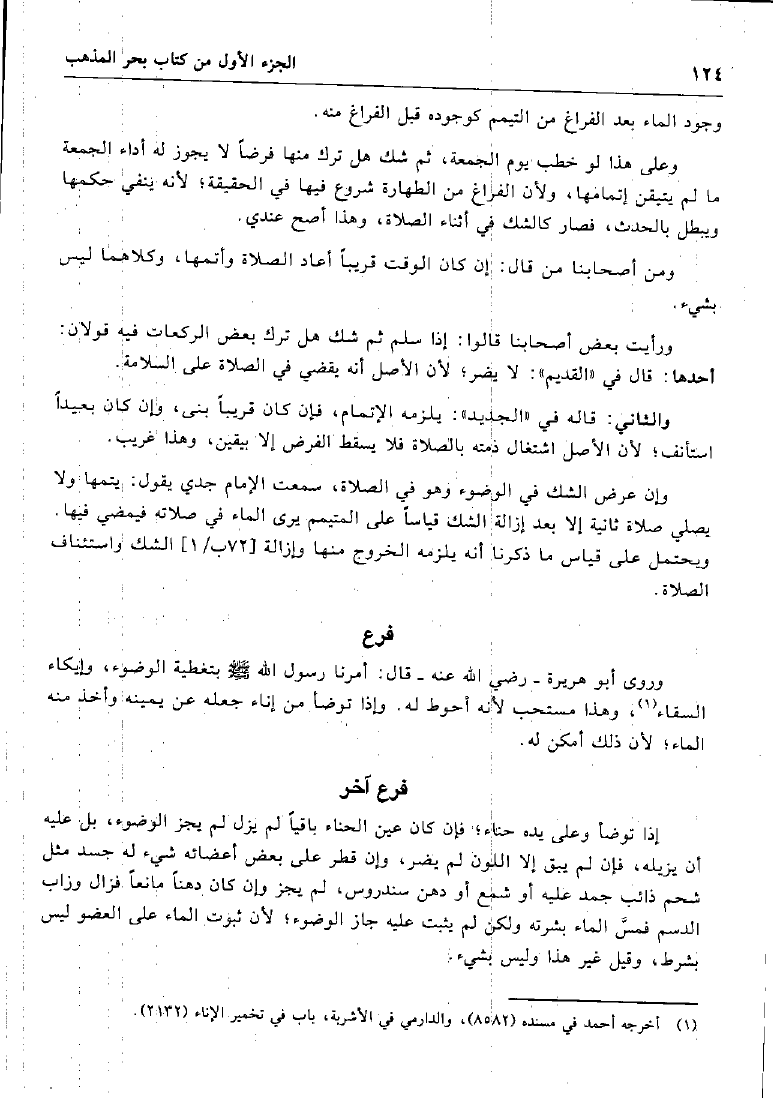 ١٢٤ الجزء الأول من كتاب بحر المذهب
وجود الماء بعد الفراغ من التيمم كوجوده قبل الفراغ منه.
وعلى هذا لو خطب يوم الجمعة، ثم شك هل ترك منها فرضاً لا يجوز له أداء الجمعة
ما لم يتيقن إتمامها، ولأن الفراغ من الطهارة شروع فيها في الحقيقة؛ لأنه ينفي حكمها
ويبطل بالحدث، فصار كالشك في أثناء الصلاة، وهذا أصح عندي.
ومن أصحابنا من قال: إن كان الوقت قريباً أعاد الصلاة وأتمها، وكلاهما ليس
بشيء.
ورأيت بعض أصحابنا قالوا: إذا سلم ثم شك هل ترك بعض الركعات فيه قولان:
أحدها: قال في «القديم»: لا يضر؛ لأن الأصل أنه يقضي في الصلاة على السلامة.
والثاني: قاله في «الجديد»: يلزمه الإتمام، فإن كان قريباً بنى، وإن كان بعيداً
استأنف؛ لأن الأصل اشتغال ذمته بالصلاة فلا يسقط الفرض إلا بيقين، وهذا غريب.
وإن عرض الشك في الوضوء وهو في الصلاة، سمعت الإمام جدي يقول: يتمها ولا
يصلي صلاة ثانية إلا بعد إزالة الشك قياساً على المتيمم يرى الماء في صلاته فيمضي فيها.
ويحتمل على قياس ما ذكرنا أنه يلزمه الخروج منها وإزالة [٧٢ب/١] الشك واستئناف
الصلاة.
فرع
وروى أبو هريرة ـ رضي الله عنه ـ قال: أمرنا رسول الله ﷺ بتغطية الوضوء، وإيكاء
السقاء(١)، وهذا مستحب لأنه أحوط له. وإذا توضأ من إناء جعله عن يمينه وأخذ منه
الماء؛ لأن ذلك أمكن له.
فرع آخر
إذا توضأ وعلى يده حناء؛ فإن كان عين الحناء باقياً لم يزل لم يجز الوضوء، بل عليه
أن يزيله، فإن لم يبق إلا اللون لم يضر، وإن قطر على بعض أعضائه شيء له جسد مثل
شحم ذائب جمد عليه أو شمع أو دهن سندروس، لم يجز وإن كان دهناً مانعاً فزال وزاب
الدسم فمسَّ الماء بشرته ولكن لم يثبت عليه جاز الوضوء؛ لأن ثبوت الماء على العضو ليس
بشرط، وقيل غير هذا وليس بشيء.
(١) أخرجه أحمد في مسنده (٨٥٨٢)، والدارمي في الأشربة، باب في تخمير الإناء (٢١٣٢).